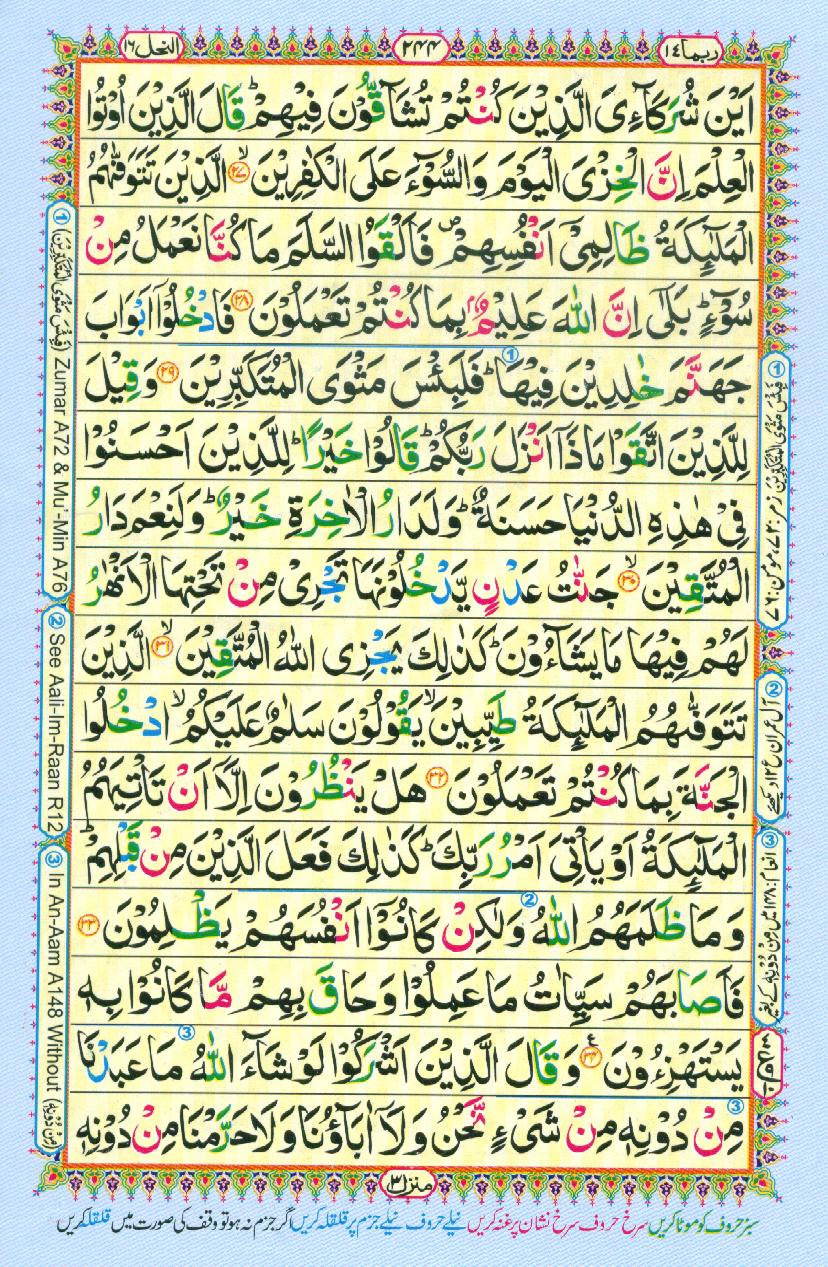 ربما ١٤
٢٤٤
النحل ١٦
اَيْنَ شُرَكَآءِىَ الَّذِيْنَ كُنْتُمْ تُشَآقُّوْنَ فِيْهِمْ ؕ قَالَ الَّذِيْنَ اُوْتُوا
الْعِلْمَ اِنَّ الْخِزْىَ الْيَوْمَ وَالسُّوْٓءَ عَلَى الْكٰفِرِيْنَ ۙ‏﴿۲۷﴾ الَّذِيْنَ تَتَوَفّٰىهُمُ
الْمَلٰٓئِكَةُ ظَالِمِىْۤ اَنْفُسِهِمْ ۪ فَاَلْقَوُا السَّلَمَ مَا كُنَّا نَعْمَلُ مِنْ
سُوْٓءٍ ؕ بَلٰٓى اِنَّ اللّٰهَ عَلِيْمٌۢ بِمَا كُنْتُمْ تَعْمَلُوْنَ ﴿۲۸﴾ فَادْخُلُوْۤا اَبْوَابَ
جَهَنَّمَ خٰلِدِيْنَ فِيْهَا ؕ ① فَلَبِئْسَ مَثْوَى الْمُتَكَبِّرِيْنَ ﴿۲۹﴾ وَقِيْلَ
لِلَّذِيْنَ اتَّقَوْا مَاذَاۤ اَنْزَلَ رَبُّكُمْ ؕ قَالُوْا خَيْرًا ؕ لِلَّذِيْنَ اَحْسَنُوْا
فِىْ هٰذِهِ الدُّنْيَا حَسَنَةٌ ؕ وَلَدَارُ الْاٰخِرَةِ خَيْرٌ ؕ وَلَنِعْمَ دَارُ
الْمُتَّقِيْنَ ۙ﴿۳۰﴾ جَنّٰتُ عَدْنٍ يَّدْخُلُوْنَهَا تَجْرِىْ مِنْ تَحْتِهَا الْاَنْهٰرُ
لَهُمْ فِيْهَا مَا يَشَآءُوْنَ ؕ كَذٰلِكَ يَجْزِى اللّٰهُ الْمُتَّقِيْنَ ۙ﴿۳۱﴾ الَّذِيْنَ
تَتَوَفّٰىهُمُ الْمَلٰٓئِكَةُ طَيِّبِيْنَ ۙ يَقُوْلُوْنَ سَلٰمٌ عَلَيْكُمُ ۙ ادْخُلُوا
الْجَنَّةَ بِمَا كُنْتُمْ تَعْمَلُوْنَ ﴿۳۲﴾ هَلْ يَنْظُرُوْنَ اِلَّاۤ اَنْ تَاْتِيَهُمُ
الْمَلٰٓئِكَةُ اَوْ يَاْتِىَ اَمْرُ رَبِّكَ ؕ كَذٰلِكَ فَعَلَ الَّذِيْنَ مِنْ قَبْلِهِمْ ؕ
وَمَا ظَلَمَهُمُ اللّٰهُ ② وَلٰكِنْ كَانُوْۤا اَنْفُسَهُمْ يَظْلِمُوْنَ ﴿۳۳﴾
فَاَصَابَهُمْ سَيِّاٰتُ مَا عَمِلُوْا وَحَاقَ بِهِمْ مَّا كَانُوْا بِهٖ
يَسْتَهْزِءُوْنَ ﴿۳۴﴾ وَقَالَ الَّذِيْنَ اَشْرَكُوْا لَوْ شَآءَ اللّٰهُ ③ مَا عَبَدْنَا
③ مِنْ دُوْنِهٖ مِنْ شَىْءٍ نَّحْنُ وَلَاۤ اٰبَآؤُنَا وَلَا حَرَّمْنَا مِنْ دُوْنِهٖ
منزل ٣
سبز حروف کو موٹا کریں سرخ حروف سرخ نشان پر غنہ کریں نیلے حروف نیلے جزم پر قلقلہ کریں اگر جزم نہ ہو تو وقف کی صورت میں قلقلہ کریں
① (فَبِئْسَ مَثْوَى الْمُتَكَبِّرِيْنَ) Zumar A72 & Mu'-Min A76
② See Aali-Im-Raan R12
③ In An-Aam A148 Without (مِنْ دُوْنِهٖ)
① فَبِئْسَ مَثْوَى الْمُتَكَبِّرِيْنَ زمر:۷۲، مومن:۷۶
② آل عمران ع ۱۲ دیکھئے
③ انعام:۱۴۸ میں مِنْ دُوْنِهٖ کے بغیر